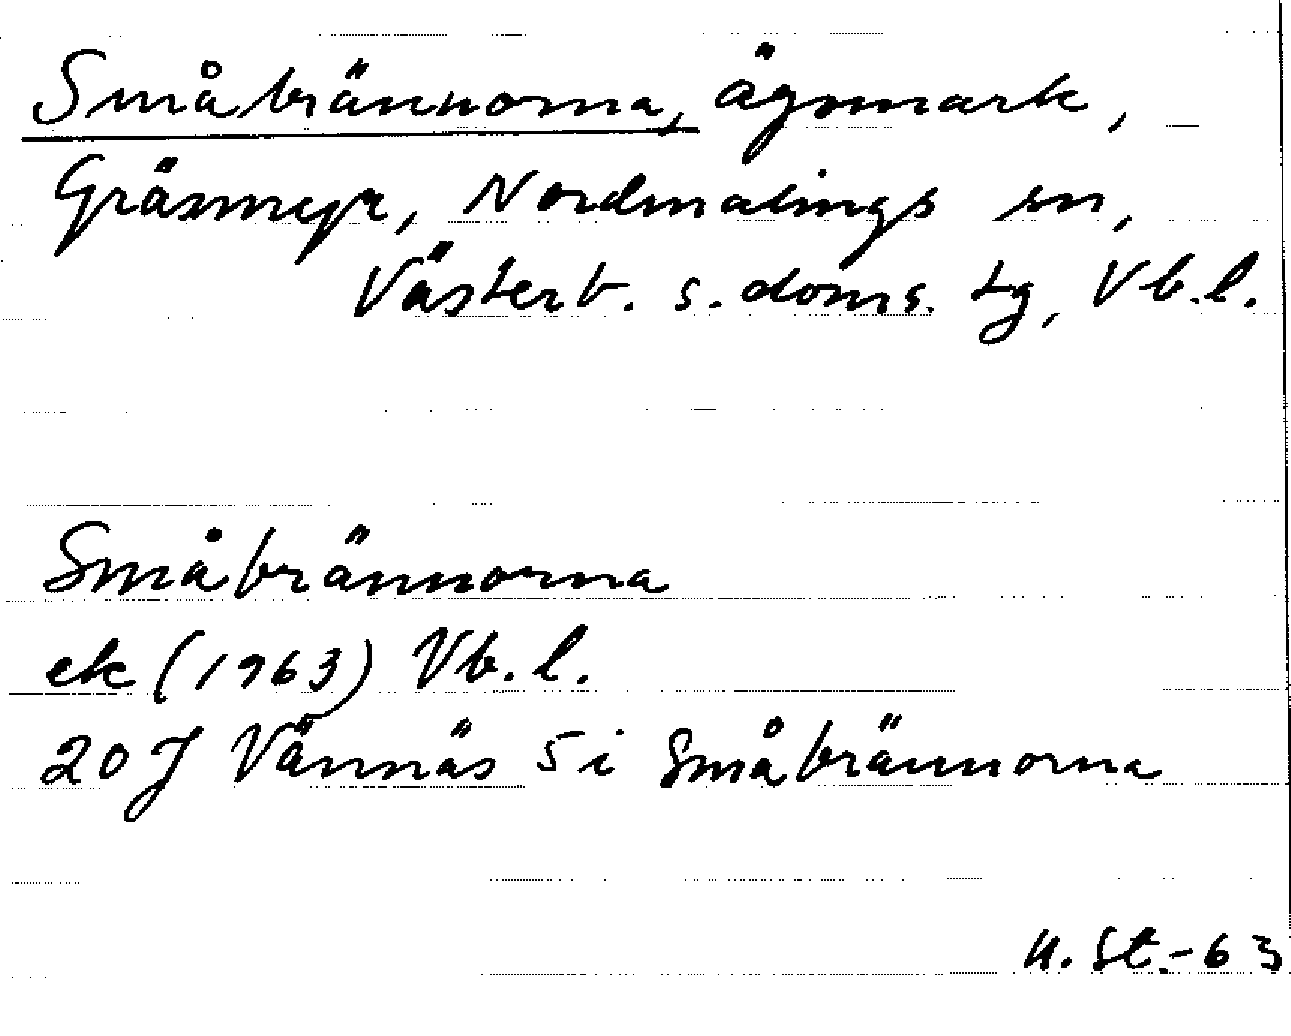 Småbrännorna, ägomark,
Gräsmyr, Nordmalings sn,
Västerb. s. doms. tg, Vb.l.
Småbrännorna
ek (1963) Vb.l.
20 J Vännäs 5 i Småbrännorna
U. St.-63